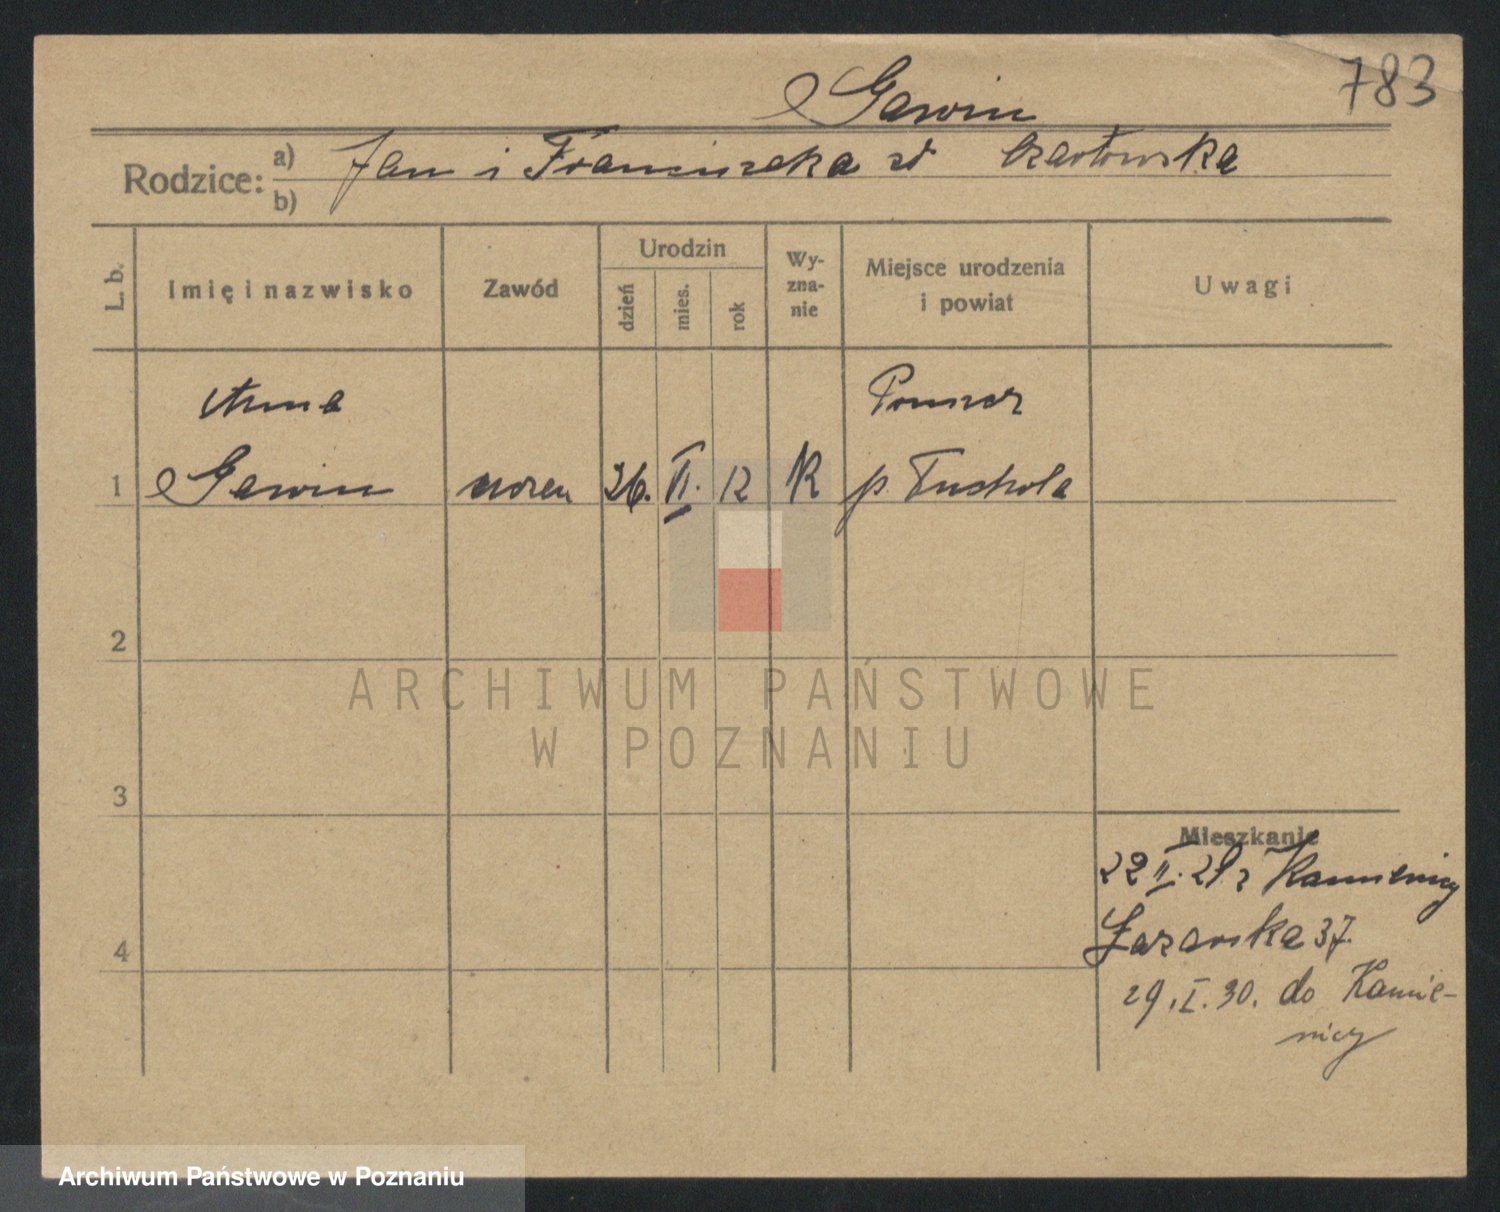 783
Gawin
Rodzice: a) Jan i Franciszka zd Czarłowska
b)
L. b. Imię i nazwisko Zawód Urodzin dzień mies. rok Wyznanie Miejsce urodzenia i powiat Uwagi
Anna
1 Gawin uczen 26. VI. 12 K p. Tuchola
2
3
4
Mieszkanie
22 II. 29 z Kamienicy
37.
29. I. 30. do Kamie-
nicy
ARCHIWUM PAŃSTWOWE
W POZNANIU
Archiwum Państwowe w Poznaniu